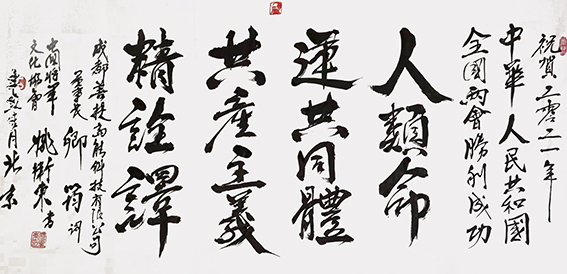 祝賀二零二一年
中華人民共和國
全國兩會勝利成功
人類命
運共同體
共產主義
精詮譯
成都菩提高能科技有限公司
董事長 卿筠词
中國將軍
文化協會 東書
月北京